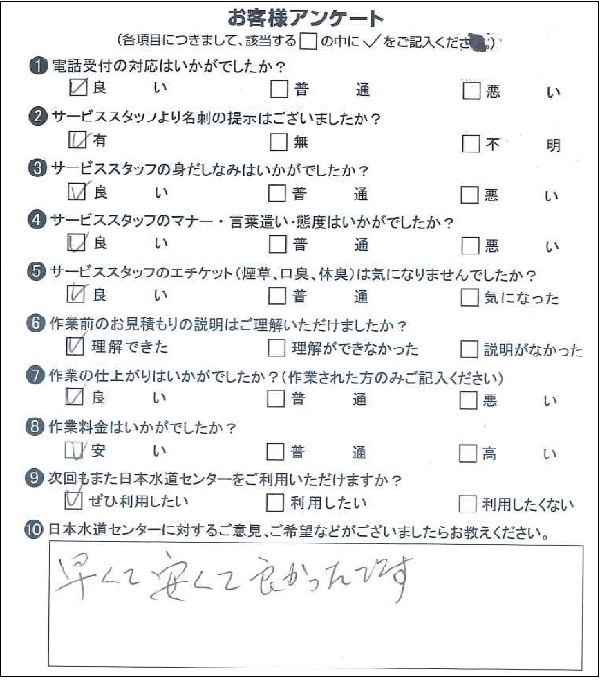 お客様アンケート
(各項目につきまして、該当する□の中に✓をご記入ください。)
❶ 電話受付の対応はいかがでしたか？
☑ 良い □ 普通 □ 悪い
❷ サービススタッフより名刺の提示はございましたか？
☑ 有 □ 無 □ 不明
❸ サービススタッフの身だしなみはいかがでしたか？
☑ 良い □ 普通 □ 悪い
❹ サービススタッフのマナー・言葉遣い・態度はいかがでしたか？
☑ 良い □ 普通 □ 悪い
❺ サービススタッフのエチケット(煙草、口臭、体臭)は気になりませんでしたか？
☑ 良い □ 普通 □ 気になった
❻ 作業前のお見積もりの説明はご理解いただけましたか？
☑ 理解できた □ 理解ができなかった □ 説明がなかった
❼ 作業の仕上がりはいかがでしたか？(作業された方のみご記入ください)
☑ 良い □ 普通 □ 悪い
❽ 作業料金はいかがでしたか？
☑ 安い □ 普通 □ 高い
❾ 次回もまた日本水道センターをご利用いただけますか？
☑ ぜひ利用したい □ 利用したい □ 利用したくない
❿ 日本水道センターに対するご意見、ご希望などがございましたらお教えください。
早くて安くて良かったです